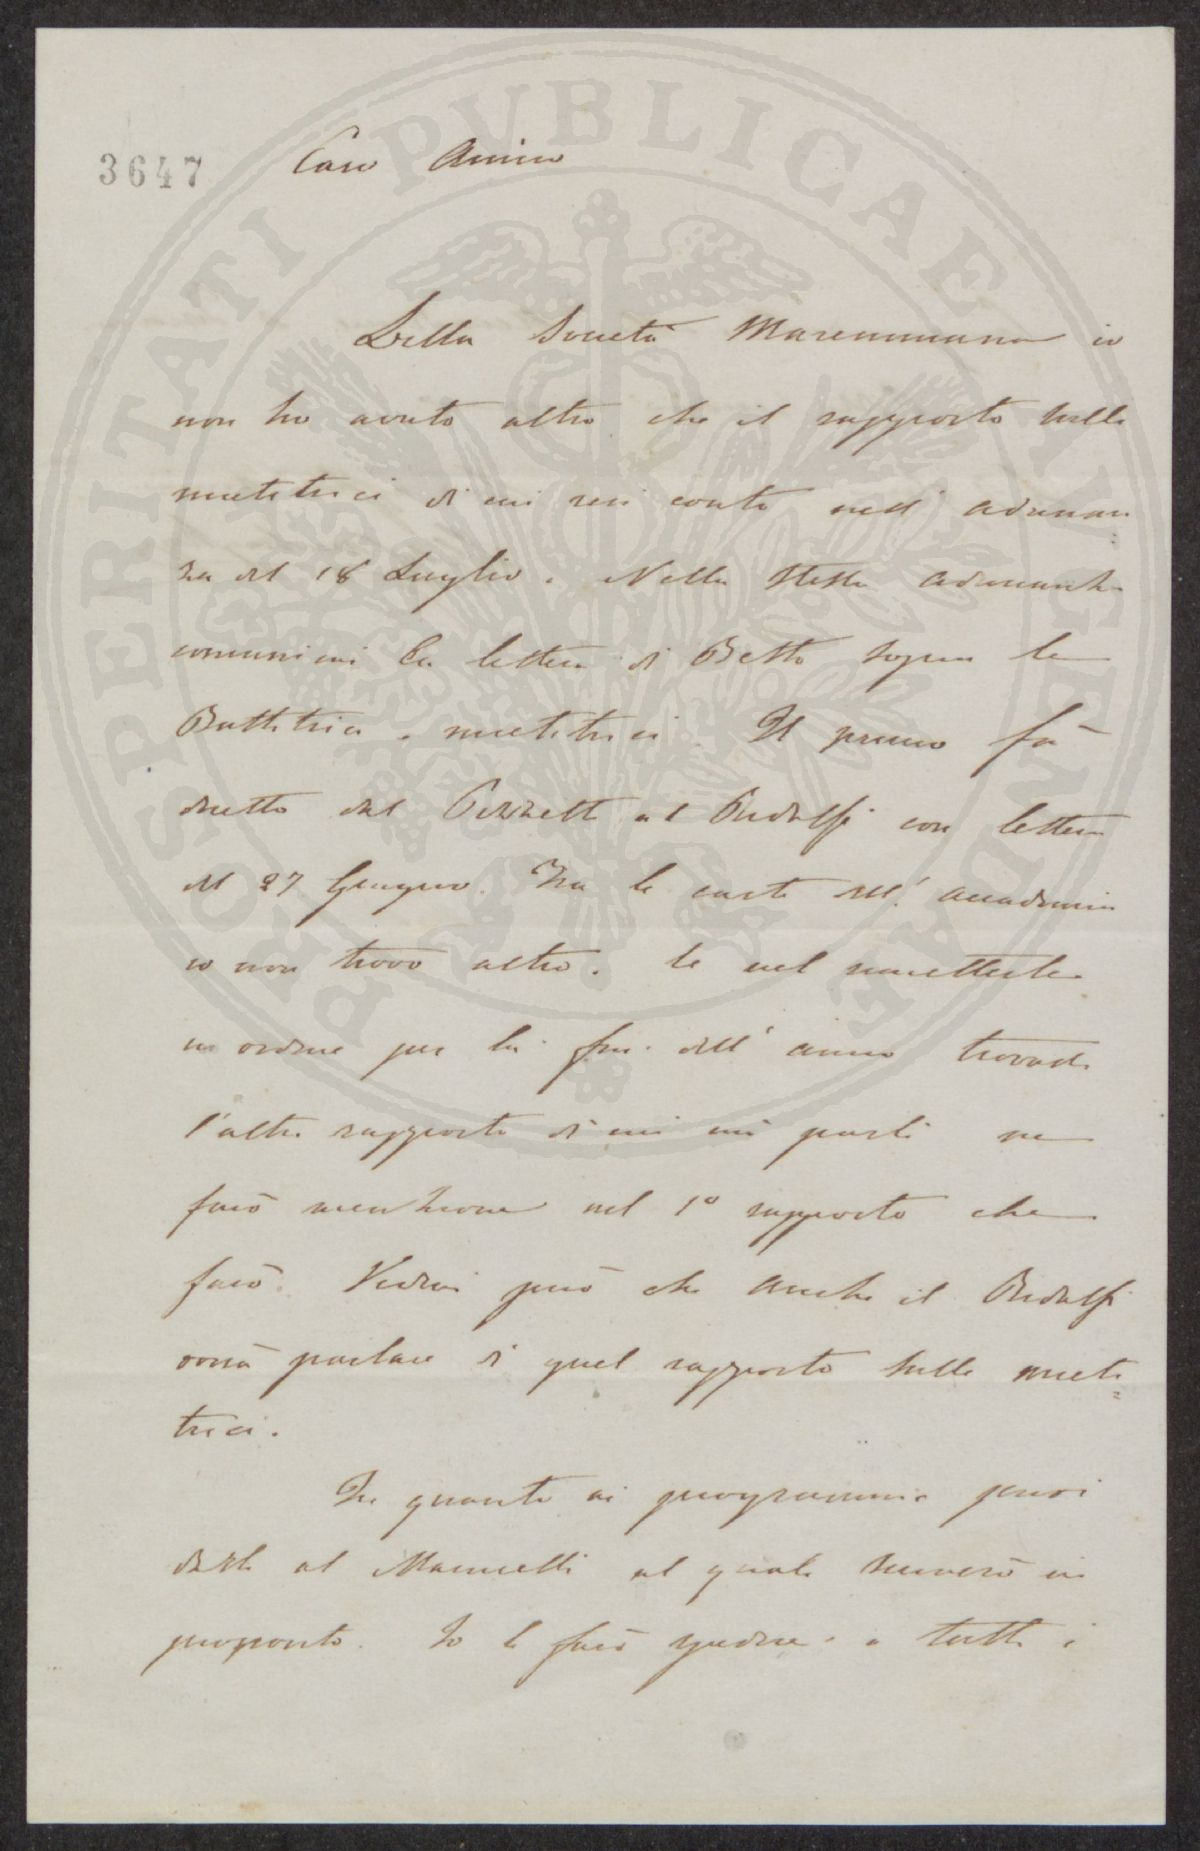 3647
Caro Amico
Della Società Maremmana io
non ho avuto altro che il rapporto sulle
mietitrici di cui resi conto nell' adunan
za del 18 Luglio. Nella stessa adunanza
comunicai la lettera di Betto sopra le
Battitrici e mietitrici. Il primo fù
diretto dal al Ridolfi con lettera
del 27 Giugno. Fra le carte dell' accademia
io non trovo altro. Se nel rimetterle
in ordine per la fine dell' anno trovassi
l'altro rapporto di cui mi parli ne
farò menzione nel 1º rapporto che
farò. Vedrai però che anche il Ridolfi
vorrà parlare di quel rapporto sulle mieti
trici.
In quanto ai programmi puoi
dirlo al Mannelli al quale scriverò in
proposito. Io le farò spedire a tutti i
PROSPERITATI PUBLICAE AUGENDAE